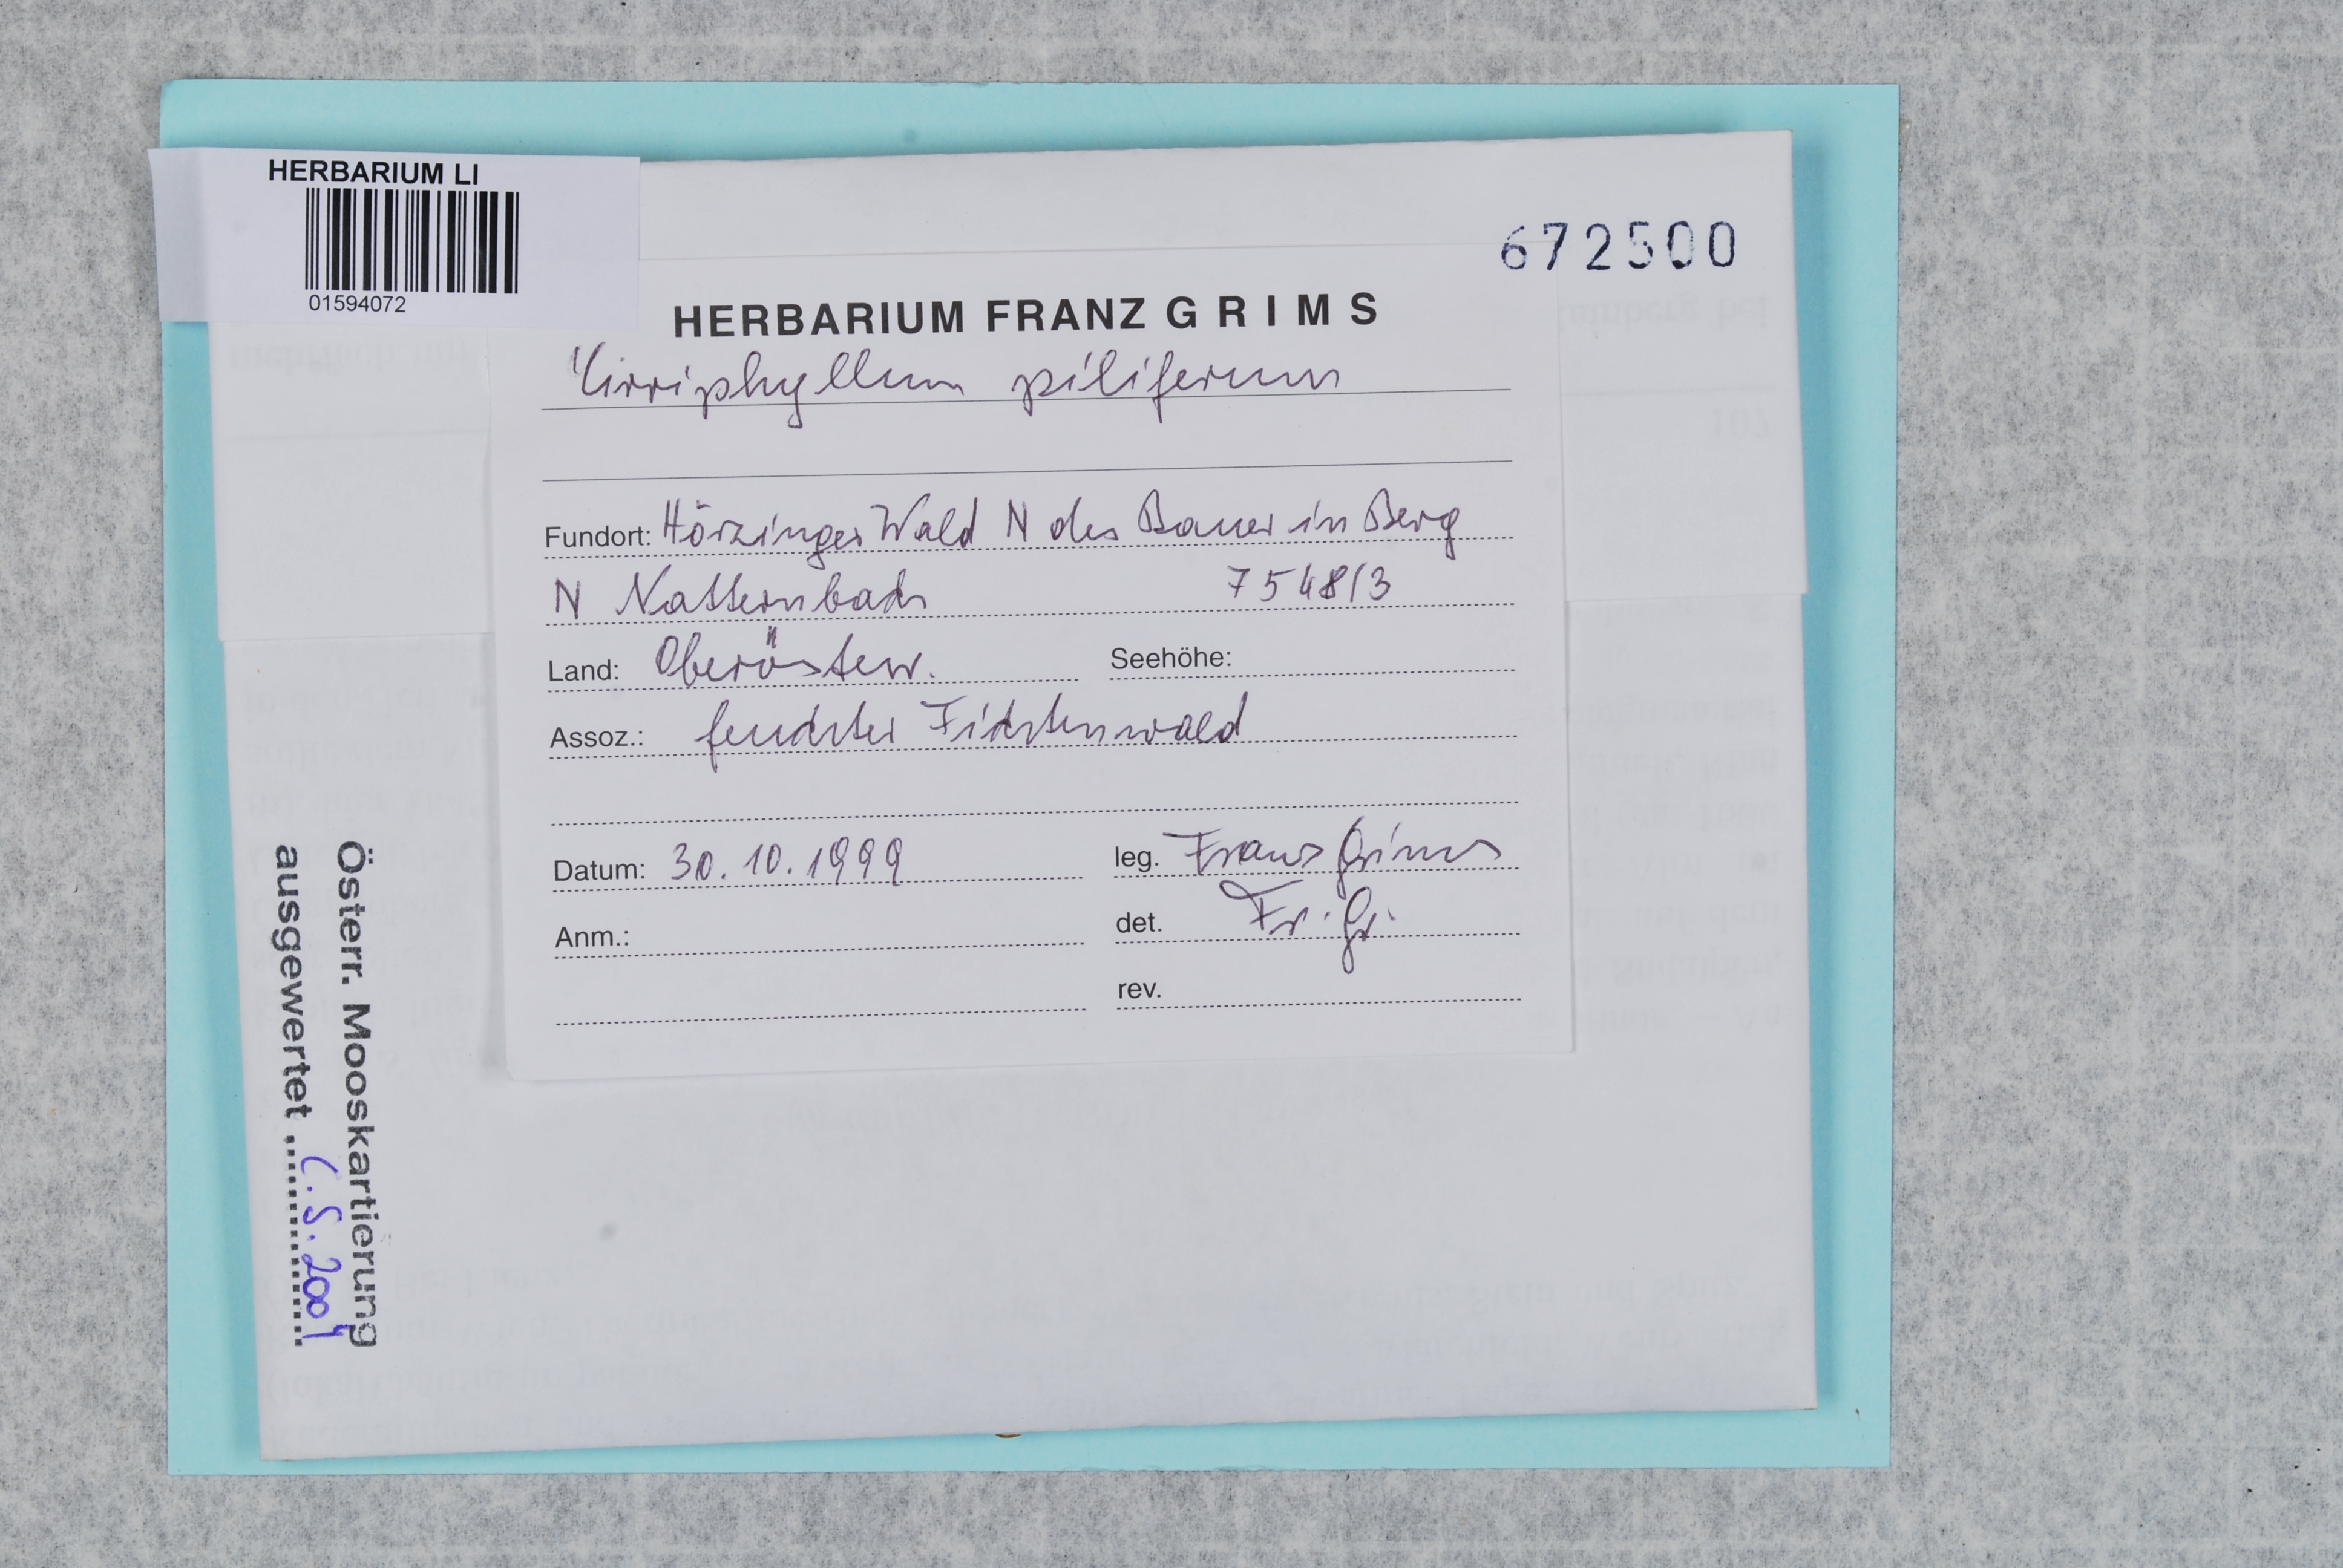 HERBARIUM LI
01594072
672500
HERBARIUM FRANZ GRIMS
Cirriphyllum piliferum
Fundort: Hörzinger Wald N des Bauer in Berg
N Natternbach 7548/3
Land: Oberösterr. Seehöhe:
Assoz.: feuchter Fichtenwald
Datum: 30.10.1999 leg. Franz Grims
Anm.: det. Fr. Gr.
rev.
Österr. Mooskartierung
ausgewertet C.S. 2001